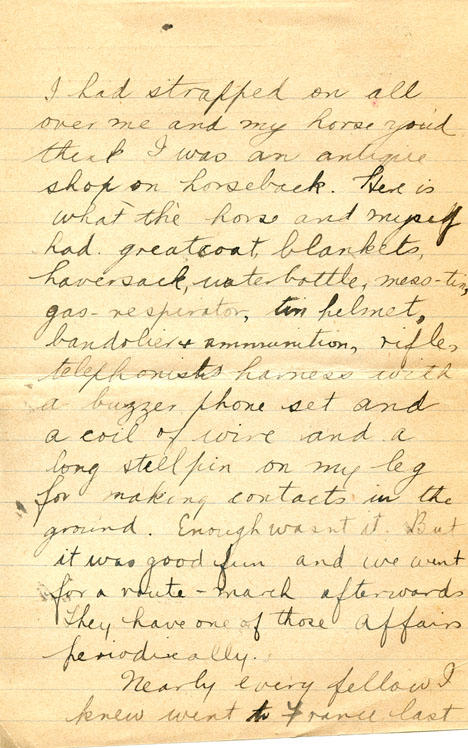 I had strapped on all
over me and my horse you'd
think I was an antique
shop on horseback. Here is
what the horse and myself
had. greatcoat, blankets,
haversack, waterbottle, mess-tin,
gas-respirator, tin helmet,
bandolier + ammunition, rifle,
telephonists harness with
a buzzer phone set and
a coil of wire and a
long steel pin on my leg
for making contacts in the
ground. Enough wasnt it. But
it was good fun and we went
for a route-march afterwards
They have one of those affairs
periodically.
Nearly every fellow I
knew went to France last